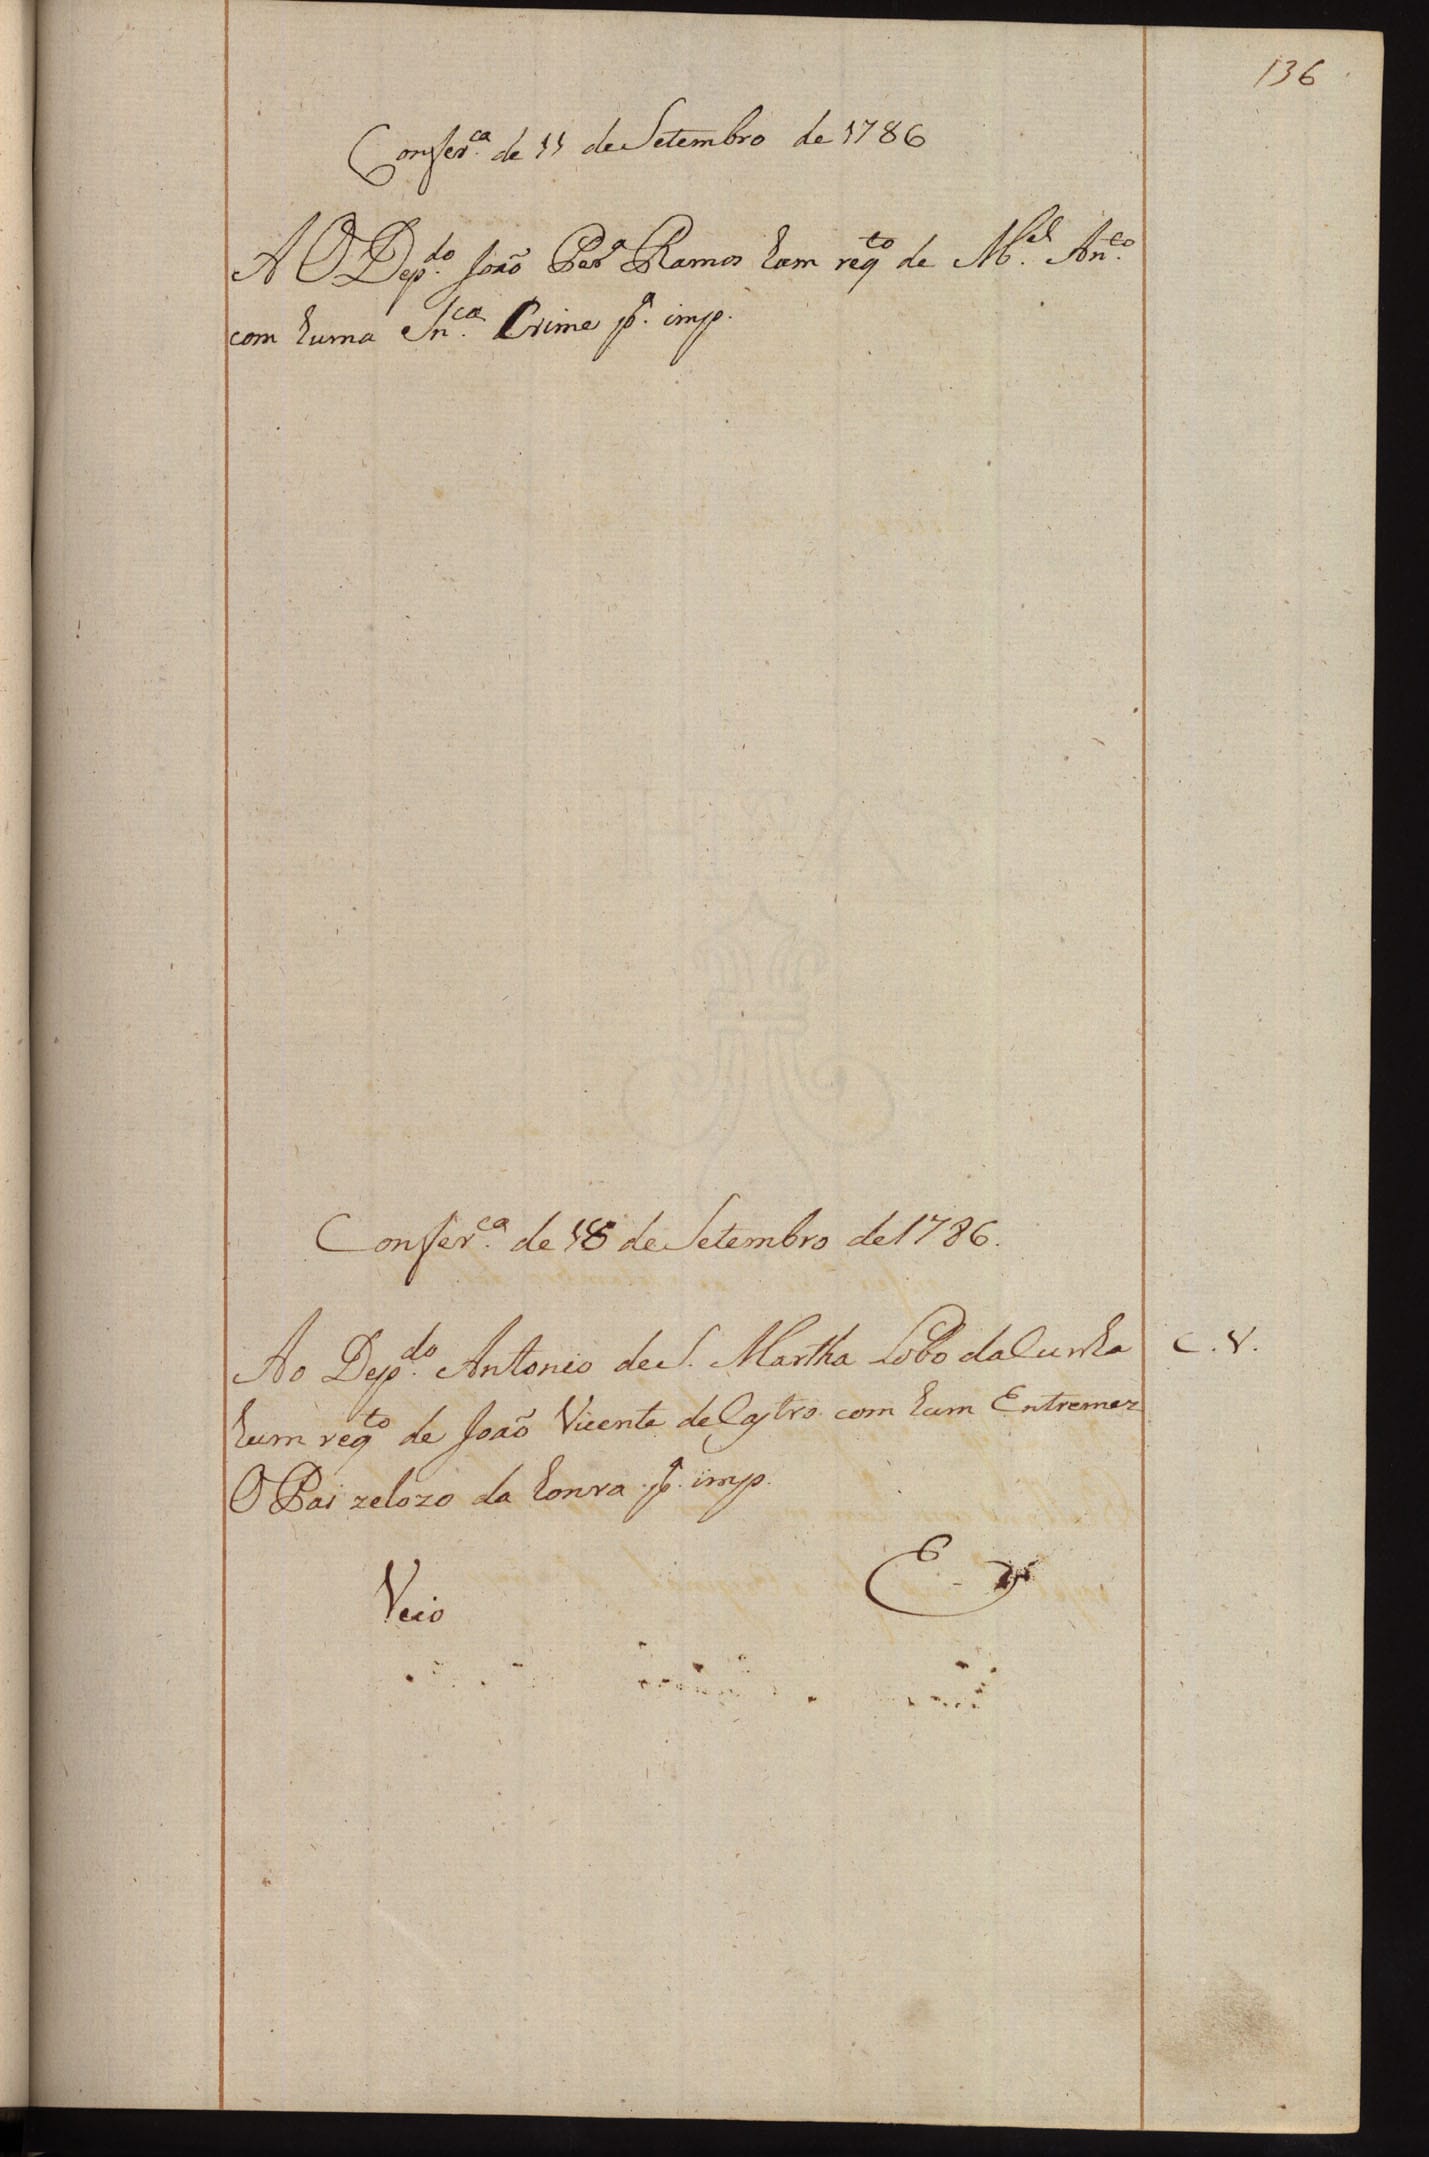 136
Confer.ca de 11 de Setembro de 1786
AO Dep.do João Per.a Ramos hum reqto de M.el An.to
com huma Sn.ca Crime p.a imp.
Confer.ca de 18 de Setembro de 1786.
Ao Dep.do Antonio de S. Martha Lobo da Cunha C. V.
hum reqto de João Vicente de Castro com hum Entremez
O Pai zelozo da honra p.a imp.
Veio